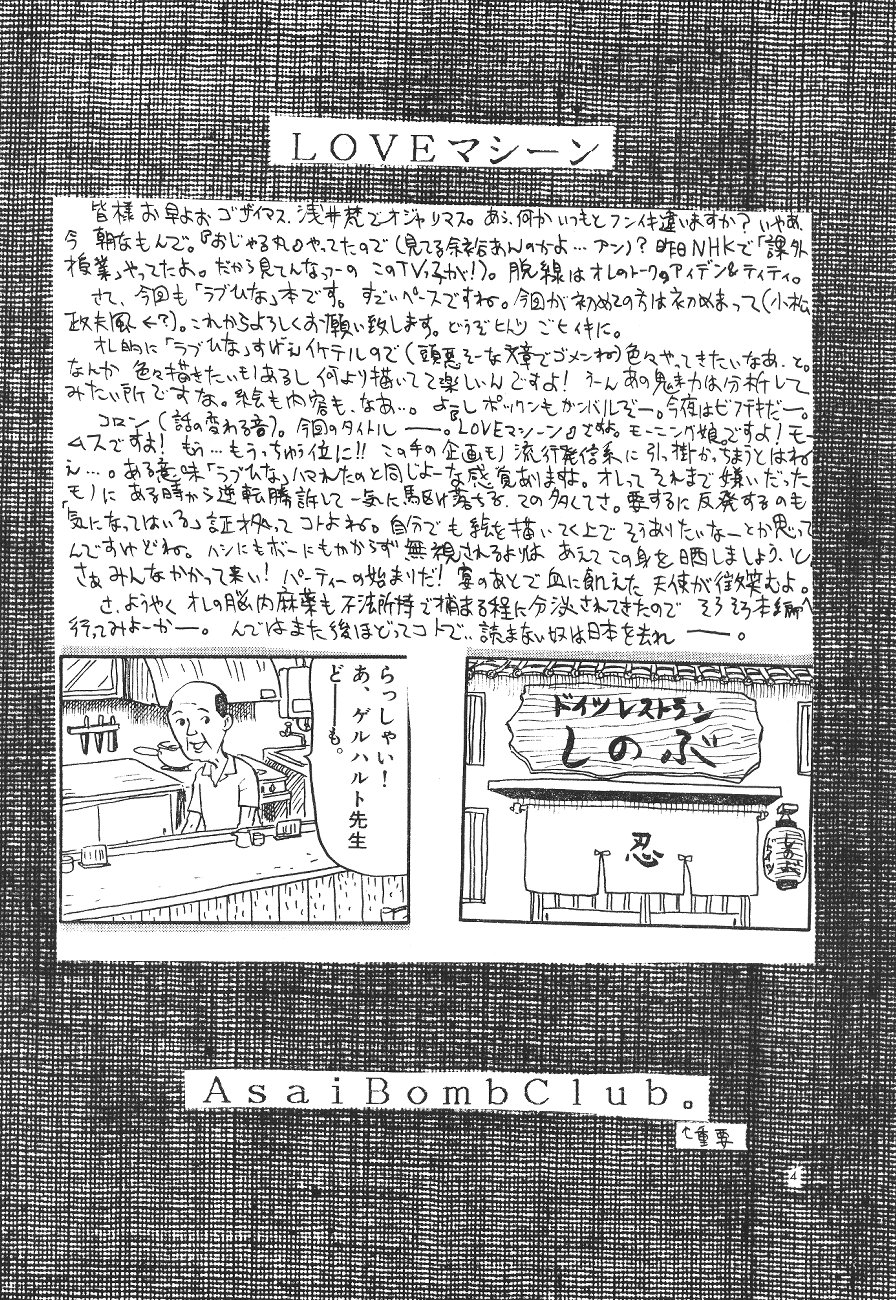 LOVEマシーン
皆様お早よおゴザイマス、浅井梵でオジャリマス。あら、何かいつもとフンイキ違いますか?いやあ、
今朝なもんで。『おじゃる丸』やってたので(見てる余裕あんのかよ…アン)?昨日NHKで「課外
授業」やってたよ。だから見てんなっつーの このTVっ子が!)。脱線はオレのトークのアイデン&ティティ。
さて、今回も「ラブひな」本です。すごいペースですね。今回が初めての方は初めまして(小松
政夫風←?)。これからよろしくお願い致します。どうぞヒトツ ごヒイキに。
オレ的に「ラブひな」すげえイケテルので(頭悪そーな文章でゴメンね)色々やってきたいなあ、と。
なんか 色々描きたいモノあるし何より描いてて楽しいんですよ!うーんあの魅力は分析して
みたい所ですな。絵も内容も、なあ…。よぉし ボックンもガンバルぞー。今夜はビフテキだー。
コロン(話の変わる音)。今回のタイトル ―。『LOVEマシーン』ですよ。モーニング娘。ですよ!モー
ムスですよ!もう…もうっちゅう位に!!この手の企画モノ流行発信系に引っ掛かっちまうとはね
え…。ある意味「ラブひな」ハマれたのと同じよーな感覚ありますよ。オレってそれまで嫌いだった
モノに ある時から逆転勝訴して一気に駆け落ちる、ての多くてさ。要するに反発するのも
「気になってはいる」証拠ってコトよね。自分でも絵を描いてく上でそうありたいなーとか思って
んですけどね。ハシにもボーにもかからず無視されるよりは あえてこの身を晒しましょう、いし
さぁ みんなかかって来い!パーティーの始まりだ!宴のあとで血に飢えた 天使が微笑むよ。
さ、ようやく オレの脳内麻薬も不法所持で捕まる程に分泌されてきたので そろそろ本編へ
行ってみよーかー。んではまた後ほどってコトで‥読まない奴は日本を去れ ―。
ドイツレストラン
しのぶ
忍
らっしゃい!
あ、ゲルハルト先生
ど――も。
AsaiBombClub。
↑重要
4